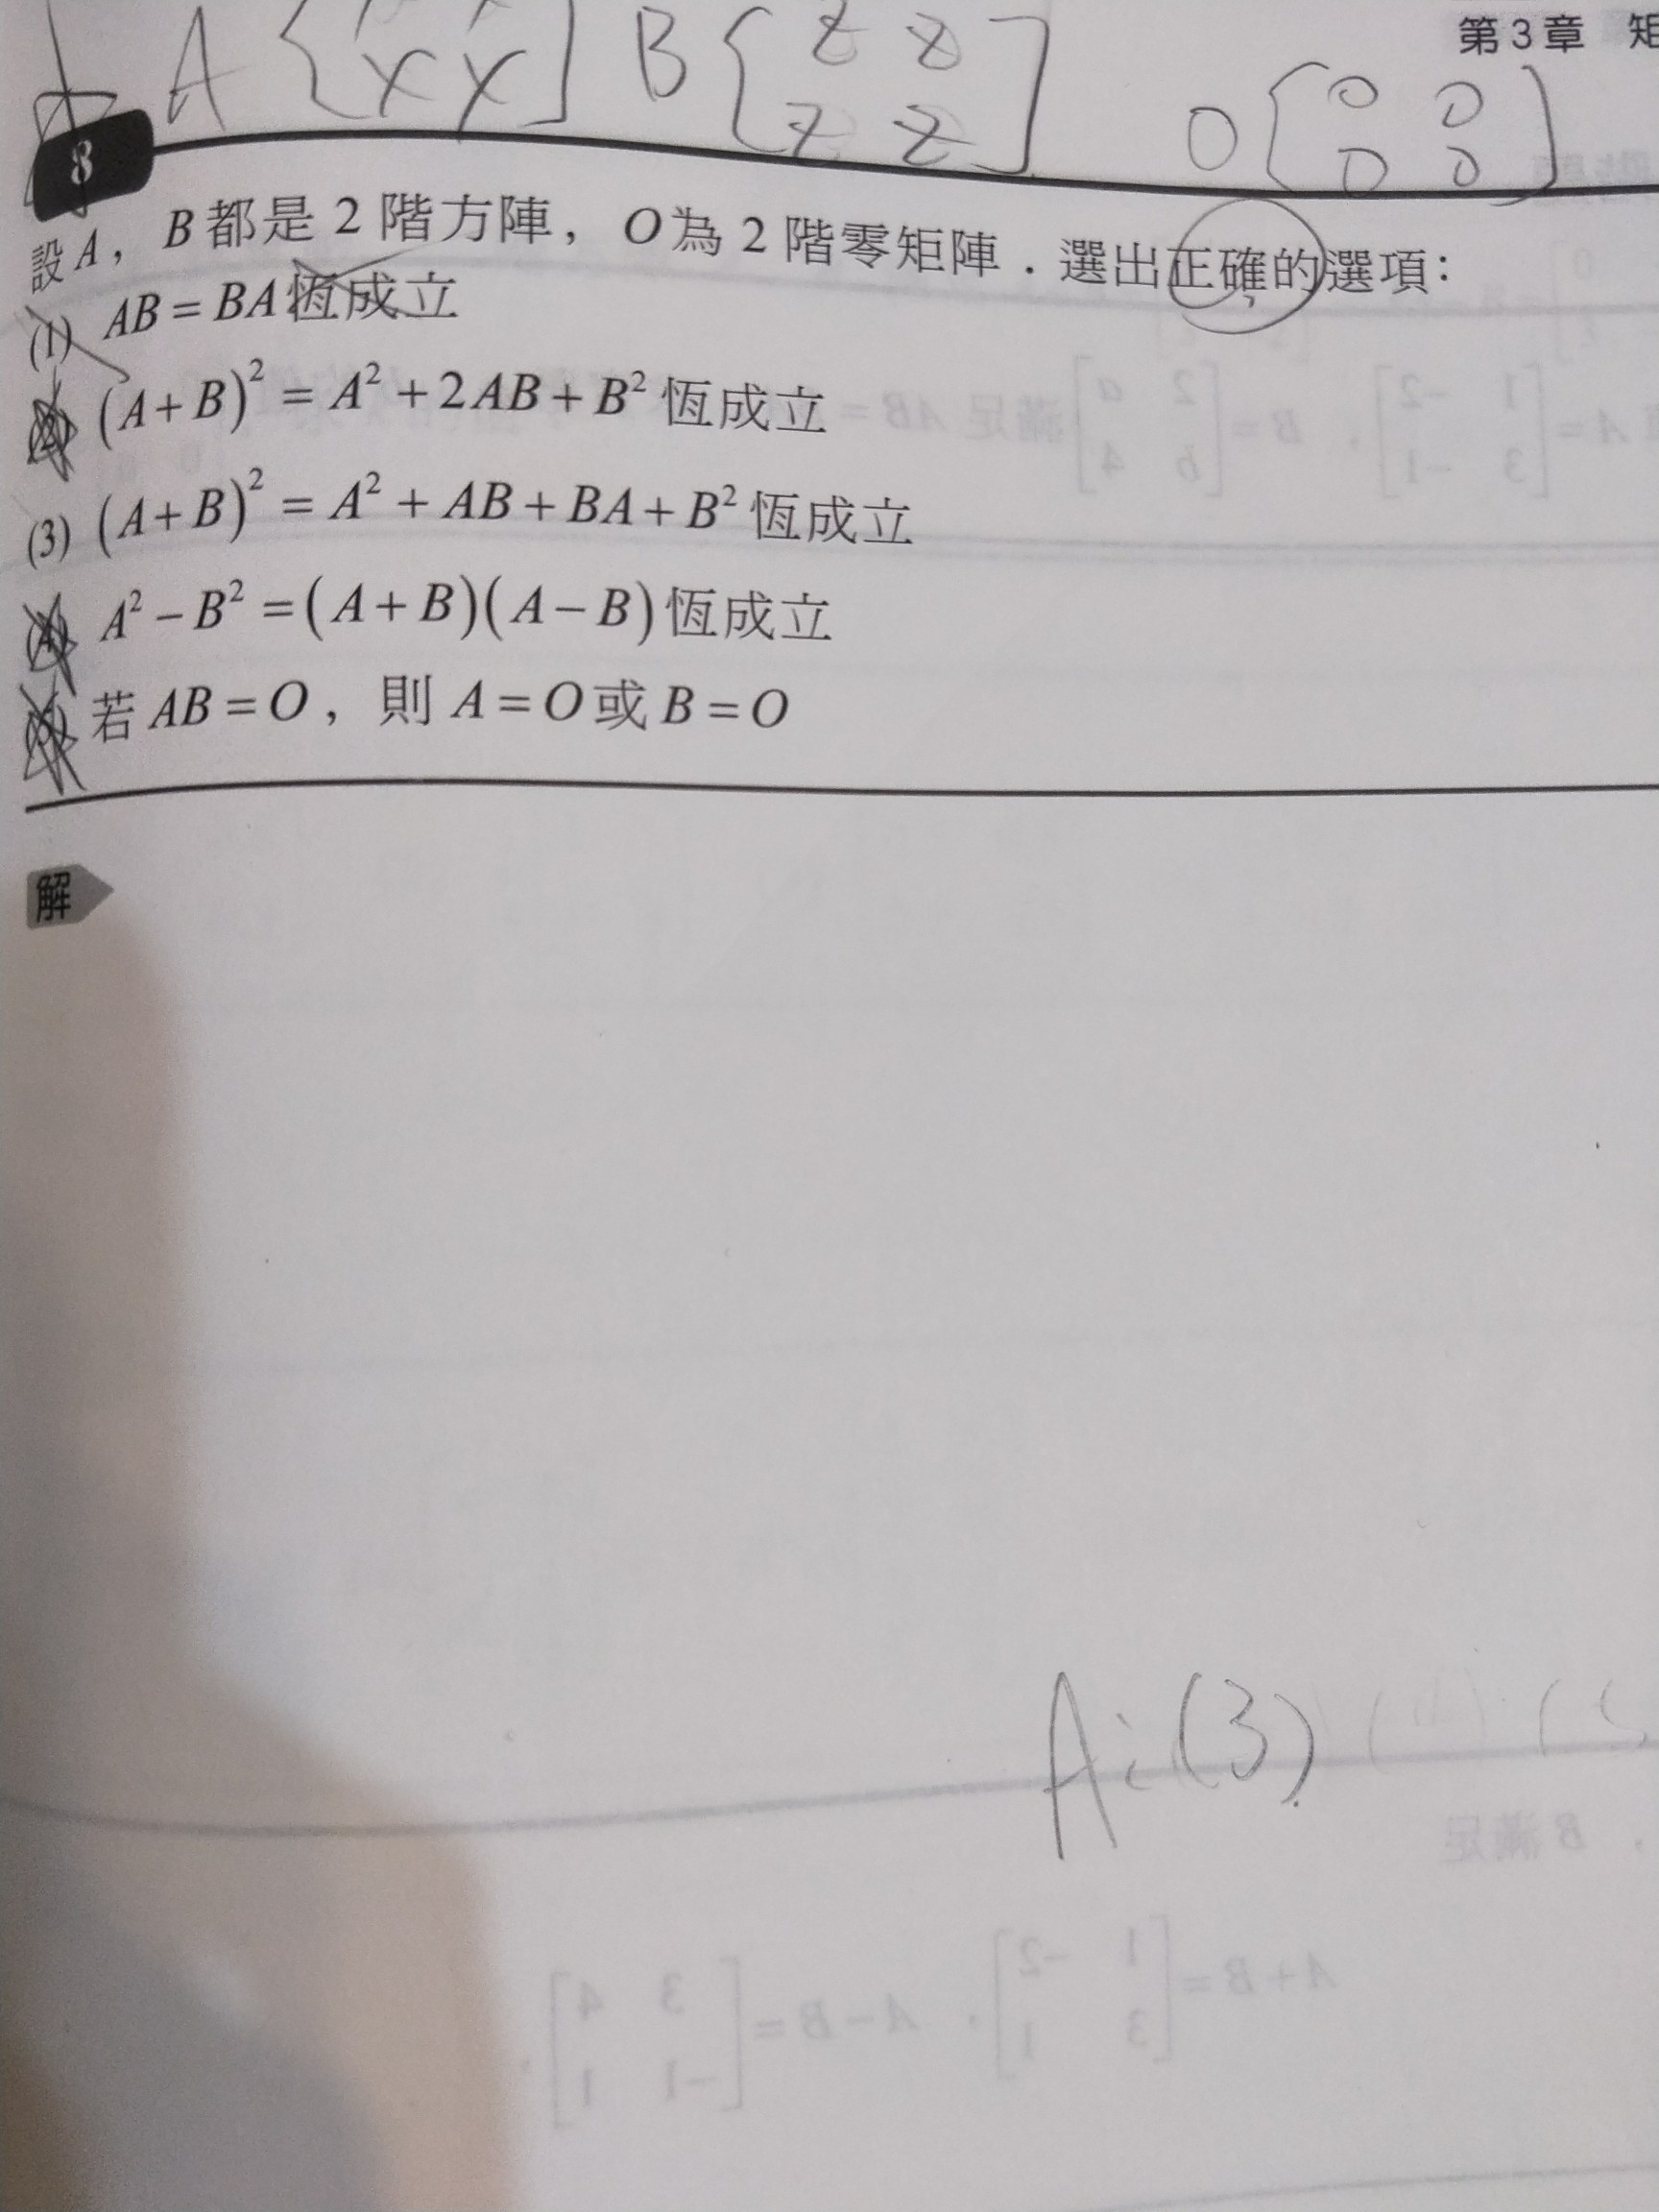 第3章 矩
A [x x] B [z z
z z] O [0 0
0 0]
8
設A，B都是2階方陣，O為2階零矩陣．選出正確的選項：
(1) AB = BA 恆成立
(2) (A+B)² = A² + 2AB + B² 恆成立
(3) (A+B)² = A² + AB + BA + B² 恆成立
(4) A² − B² = (A+B)(A−B) 恆成立
若 AB = O，則 A = O 或 B = O
解
A:(3)